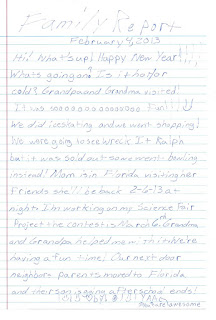 Family Report
February 4, 2013
Hi! What's up! Happy New Year!!!
Whats going on? Is it hot or
cold? Grandpa and Grandma visited!
It was soooooooooooo fun!!
We did iceskating and we went shopping!
We were going to see Wreck It Ralph
but it was sold out so we went bowling
instead! Mom is in Florida visiting her
friends she'll be back 2-6-13 at
night. I'm working on my Science Fair
Project the contest is March 6th Grandma
and Grandpa helped me with it. We're
having a fun time! Our next door
neighbors parents moved to Florida
and their son is going after school ends!